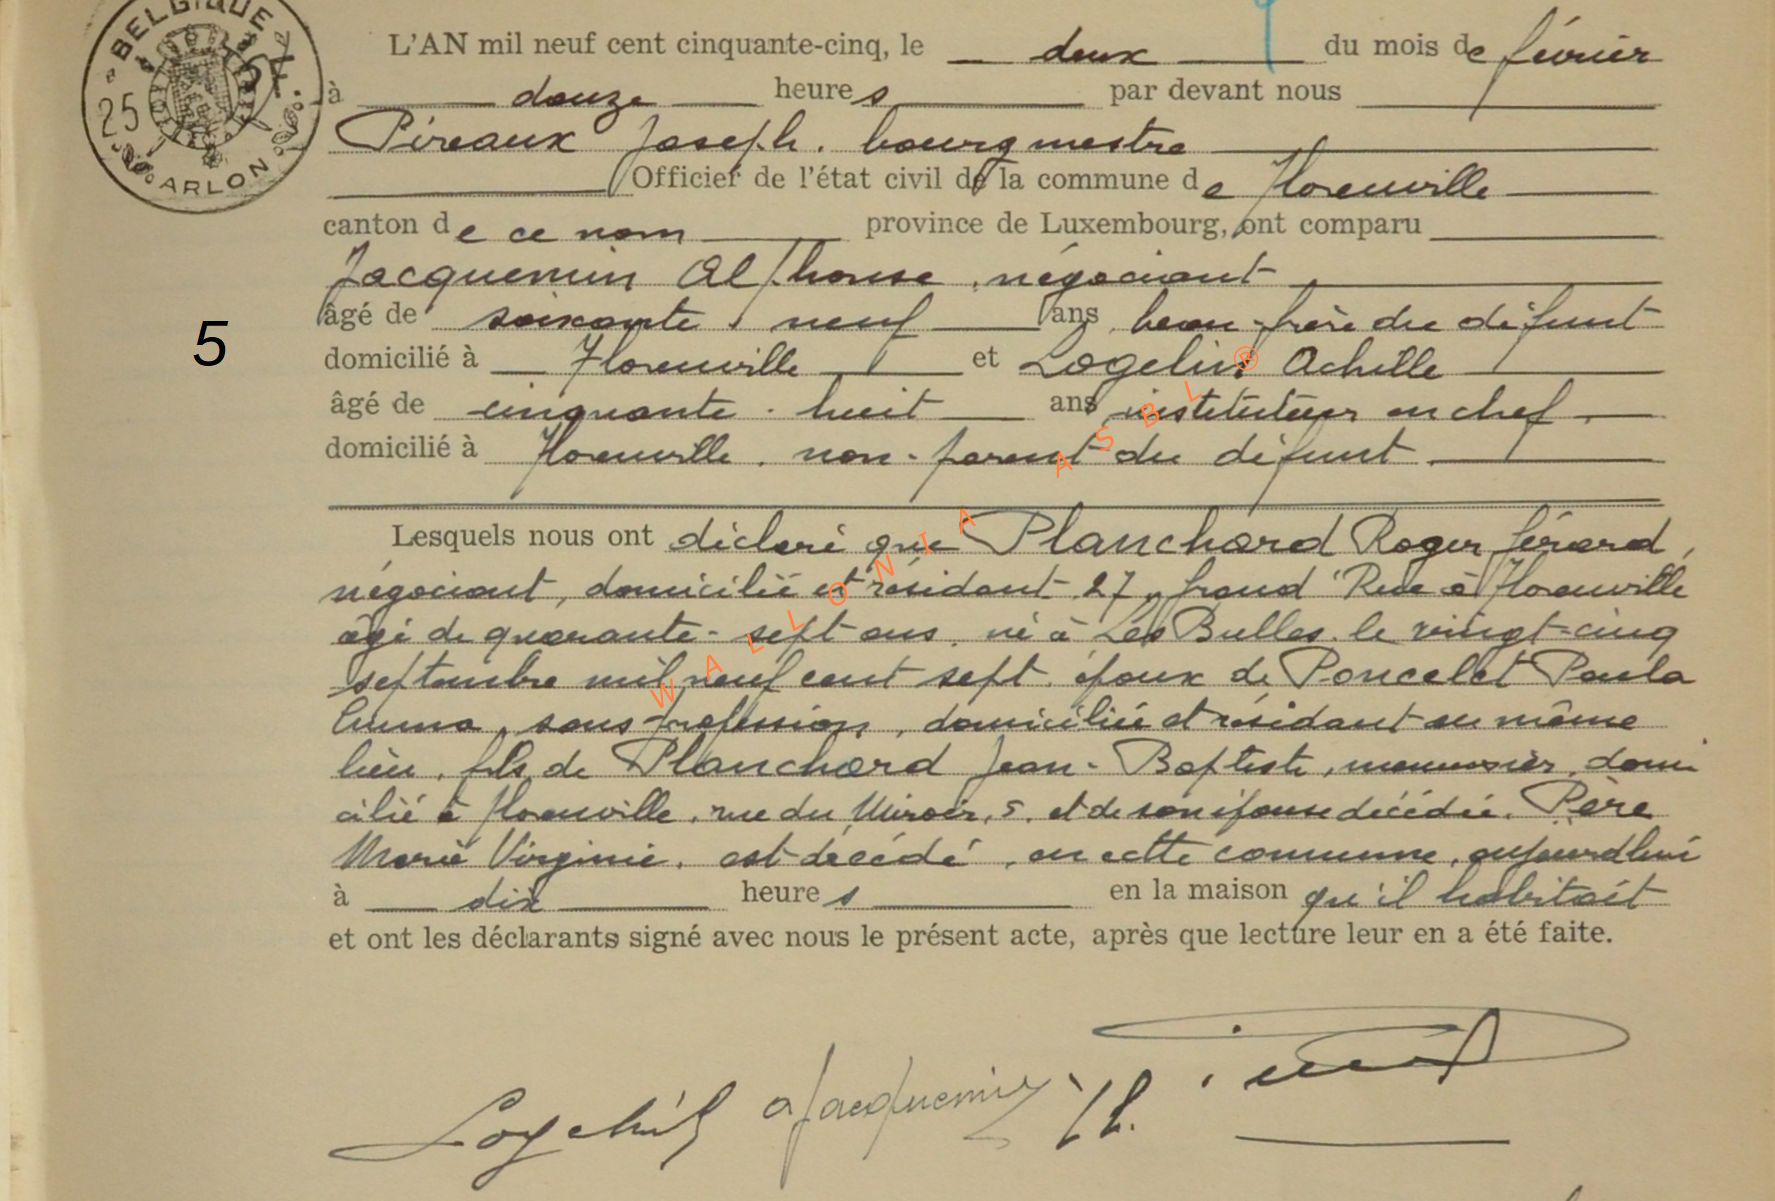 BELGIQUE
25
ARLON
L'AN mil neuf cent cinquante-cinq, le deux du mois de février
à douze heures par devant nous
Pireaux Joseph. bourgmestre
Officier de l'état civil de la commune de Florenville
canton de ce nom province de Luxembourg, ont comparu
Jacquemin Alphonse, négociant
âgé de soixante neuf ans, beau-frère du défunt
5
domicilié à Florenville et Logelin Achille
âgé de cinquante-huit ans instituteur en chef,
domicilié à Florenville, non-parent du défunt
Lesquels nous ont déclaré que Planchard Roger Gérard,
négociant, domicilié et résidant 27, Grand'Rue à Florenville
âgé de quarante-sept ans, né à Les Bulles, le vingt-cinq
septembre mil neuf cent sept, époux de Poncelet Paula
Emma, sans profession, domiciliée et résidant au même
lieu, fils de Planchard Jean-Baptiste, menuisier, domi
cilié à Florenville, rue du Miroir, 5, et de son épouse décédée, Père
Marie Virginie, est décédé, en cette commune, aujourd'hui
à dix heures en la maison qu'il habitait
et ont les déclarants signé avec nous le présent acte, après que lecture leur en a été faite.
WALLONIA ASBL ®
Logelin aJacquemin